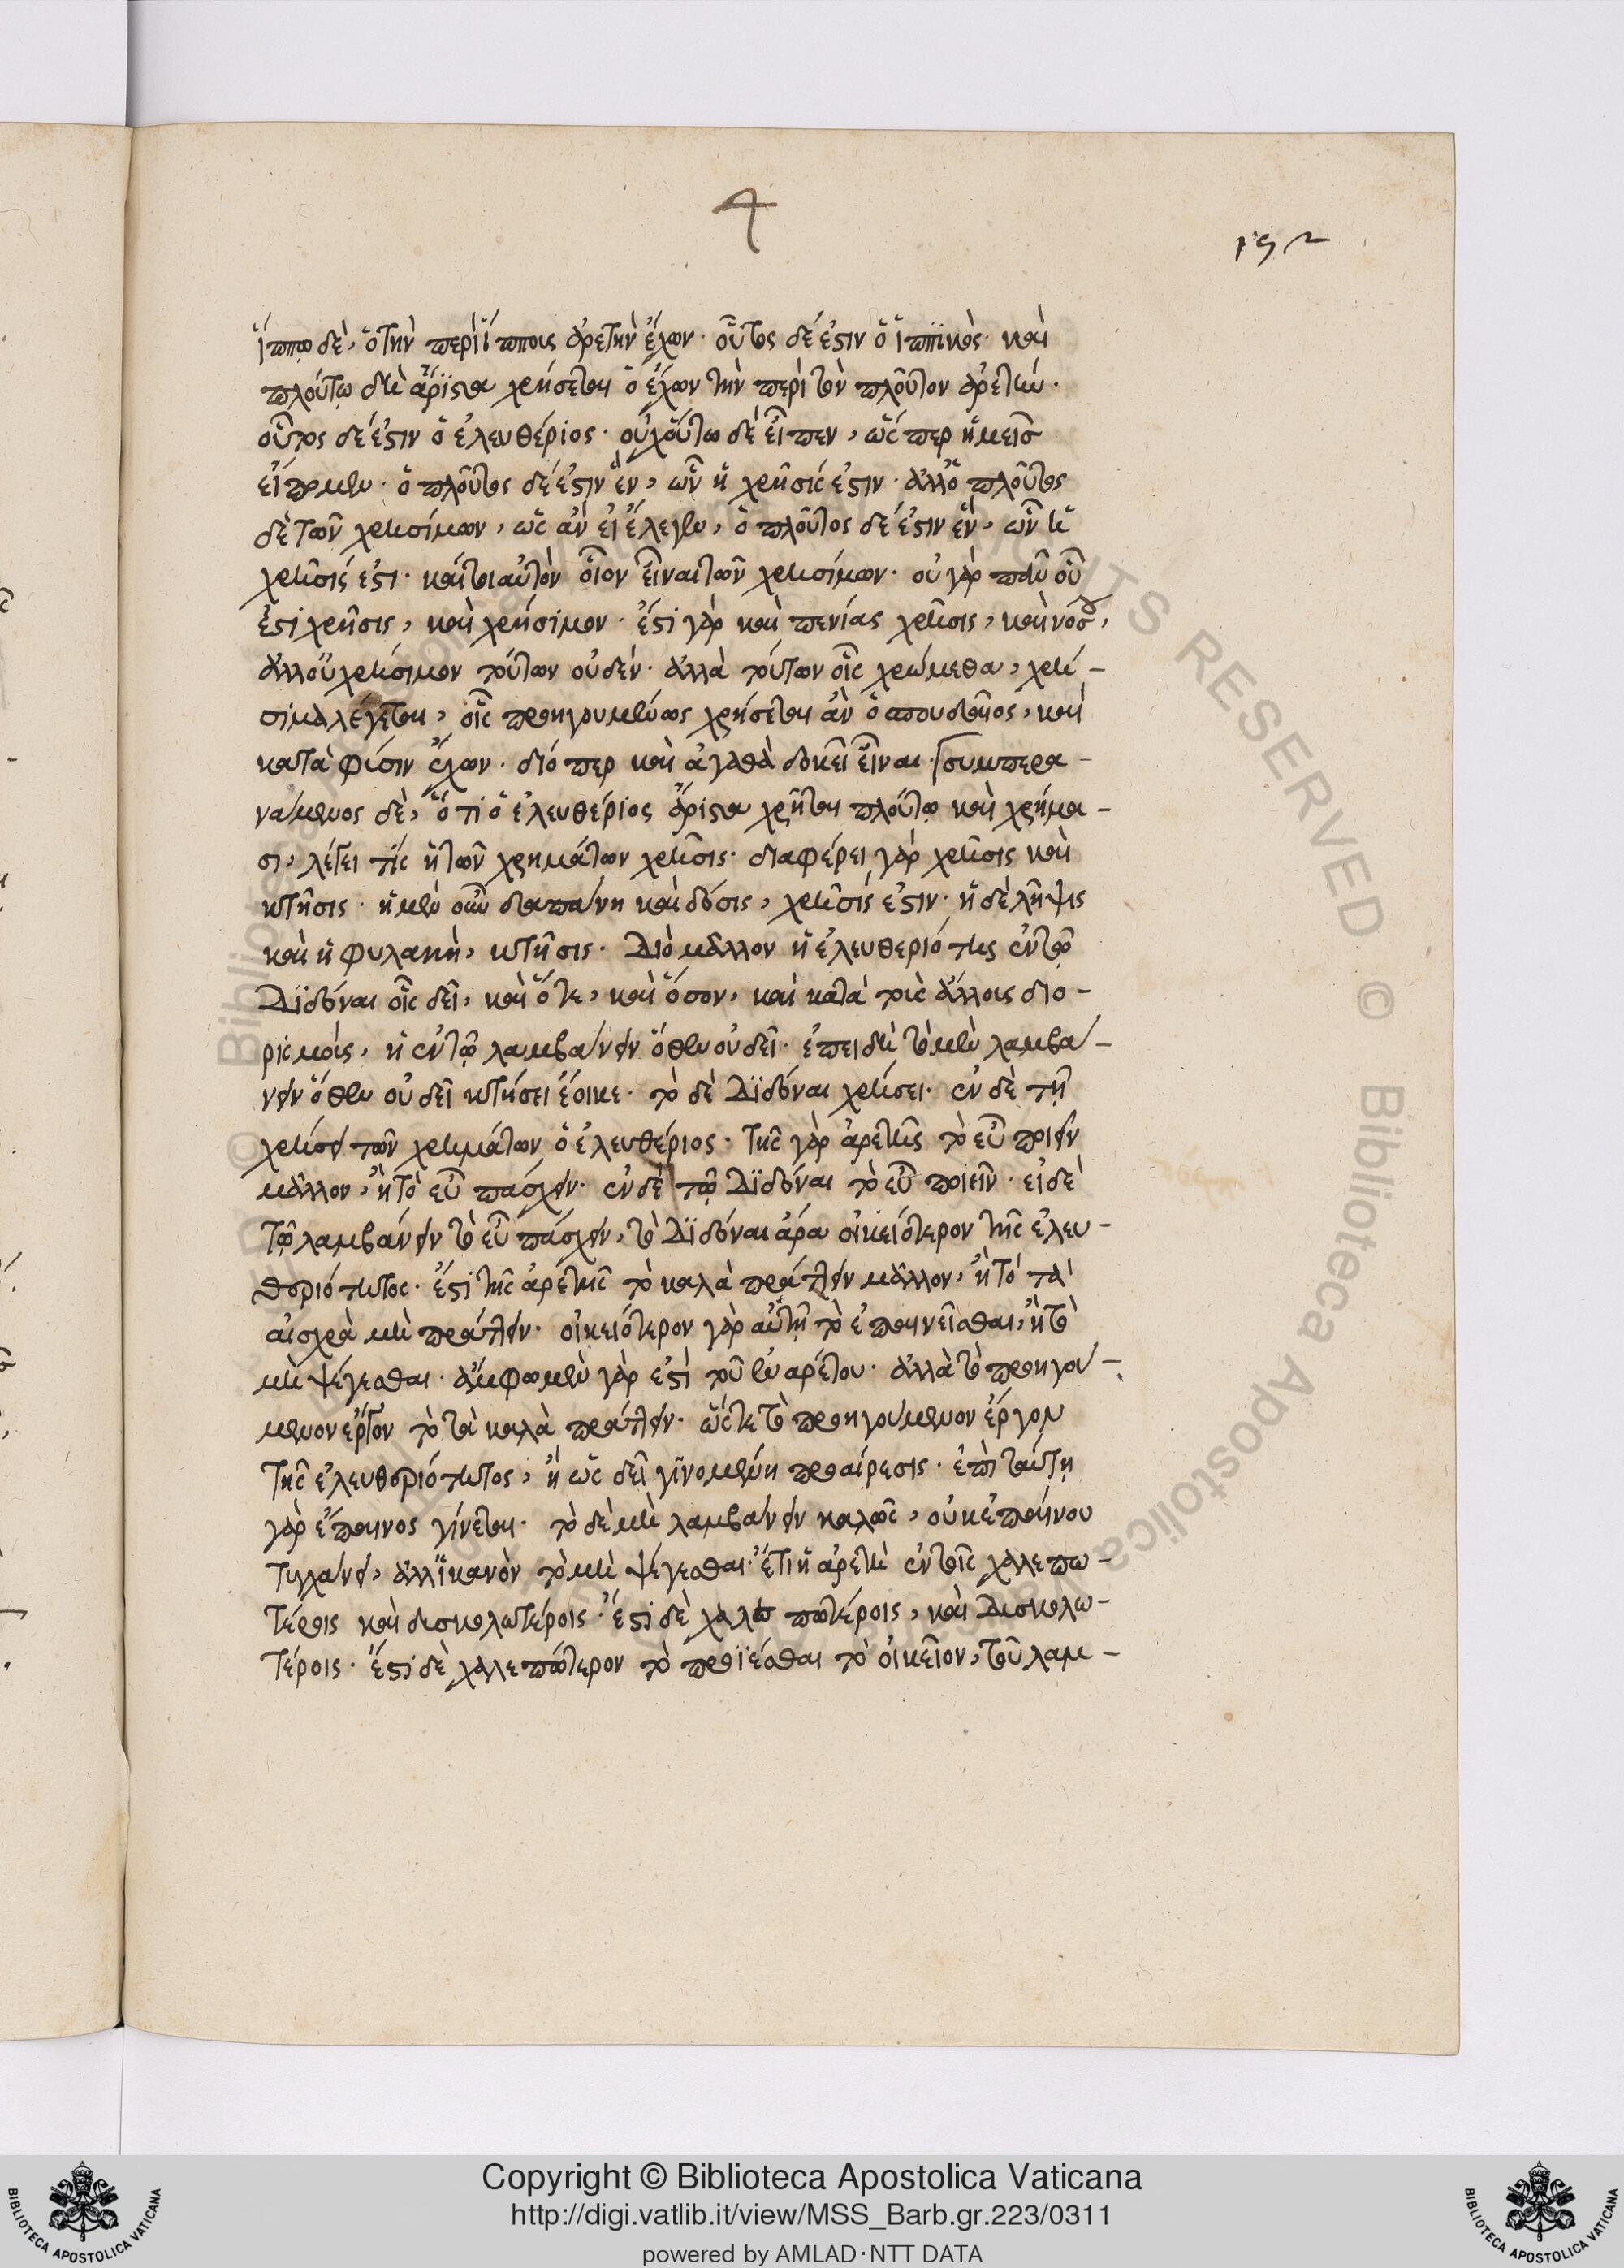 4
192
ἵππῳ δὲ, ὁ τὴν περὶ ἵππους ἀρετὴν ἔχων· οὗτος δέ ἐστιν ὁ ἱππικὸς· καὶ
πλούτῳ δὴ ἄριστα χρήσεται ὁ ἔχων τὴν περὶ τὸν πλοῦτον ἀρετήν·
οὗτος δέ ἐστιν ὁ ἐλευθέριος· οὐχ οὕτω δὲ εἶπεν, ὥσπερ ἡμεῖς
εἴπομεν· ὁ πλοῦτος δέ ἐστιν ἓν, ὧν ἡ χρῆσίς ἐστιν· ἀλλ' ὁ πλοῦτος
δὲ τῶν χρησίμων, ὡς ἂν εἰ ἔλεγεν, ὁ πλοῦτος δέ ἐστιν ἓν, ὧν ἡ
χρῆσίς ἐστι· καίτοι αὐτὸν οἷον εἶναι τῶν χρησίμων· οὐ γὰρ πᾶν οὗ
ἐστὶ χρῆσις, καὶ χρήσιμον· ἔστι γὰρ καὶ πενίας χρῆσις, καὶ νόσου,
ἀλλ' οὐ χρήσιμον τούτων οὐδέν· ἀλλὰ τούτων οἷς χρώμεθα, χρή-
σιμα λέγεται, οἷς προηγουμένως χρήσεται ἂν ὁ σπουδαῖος, καὶ
κατὰ φύσιν ἔχων· διόπερ καὶ ἀγαθὰ δοκεῖ εἶναι· συμπερα-
νάμενος δὲ, ὅτι ὁ ἐλευθέριος ἄριστα χρῆται πλούτῳ καὶ χρήμα-
σι, λέγει τίς ἡ τῶν χρημάτων χρῆσις· διαφέρει γὰρ χρῆσις καὶ
κτῆσις· ἡ μὲν οὖν δαπάνη καὶ δόσις, χρῆσίς ἐστιν· ἡ δὲ λῆψις
καὶ ἡ φυλακὴ, κτῆσις· Διὸ μᾶλλον ἡ ἐλευθεριότης ἐν τῷ
Διδόναι οἷς δεῖ, καὶ ὅτε, καὶ ὅσον, καὶ κατὰ τοὺς ἄλλους διο-
ρισμοὺς, ἢ ἐν τῷ λαμβάνειν ὅθεν οὐ δεῖ· ἐπειδὴ τὸ μὲν λαμβά-
νειν ὅθεν οὐ δεῖ κτήσει ἔοικε· τὸ δὲ Διδόναι χρήσει· ἐν δὲ τῇ
χρήσει τῶν χρημάτων ὁ ἐλευθέριος· τῆς γὰρ ἀρετῆς τὸ εὖ ποιεῖν
μᾶλλον, ἢ τὸ εὖ πάσχειν· ἐν δὲ τῷ Διδόναι τὸ εὖ ποιεῖν· εἰ δὲ
τῷ λαμβάνειν τὸ εὖ πάσχειν, τὸ Διδόναι ἄρα οἰκειότερον τῆς ἐλευ-
θεριότητος· ἔστι τῆς ἀρετῆς τὸ καλὰ πράττειν μᾶλλον, ἢ τὸ τὰ
αἰσχρὰ μὴ πράττειν· οἰκειότερον γὰρ αὐτῇ τὸ ἐπαινεῖσθαι, ἢ τὸ
μὴ ψέγεσθαι· ἄμφω μὲν γὰρ ἐστὶ τοῦ ἐναρέτου· ἀλλὰ τὸ προηγού-
μενον ἔργον τὸ τὰ καλὰ πράττειν· ὥστε τὸ προηγούμενον ἔργον
τῆς ἐλευθεριότητος, ἡ ὡς δεῖ γινομένη προαίρεσις· ἐπὶ ταύτῃ
γὰρ ἔπαινος γίνεται· τὸ δὲ μὴ λαμβάνειν καλῶς, οὐκ ἐπαίνου
τυγχάνει, ἀλλ' ἱκανὸν τὸ μὴ ψέγεσθαι· ἔτι ἡ ἀρετὴ ἐν τοῖς χαλεπω-
τέροις καὶ δυσκολωτέροις· ἔστι δὲ χαλεπωτέροις, καὶ Δυσκολω-
τέροις· ἔστι δὲ χαλεπώτερον τὸ προΐεσθαι τὸ οἰκεῖον, τοῦ λαμ-
Copyright © Biblioteca Apostolica Vaticana
http://digi.vatlib.it/view/MSS_Barb.gr.223/0311
powered by AMLAD·NTT DATA